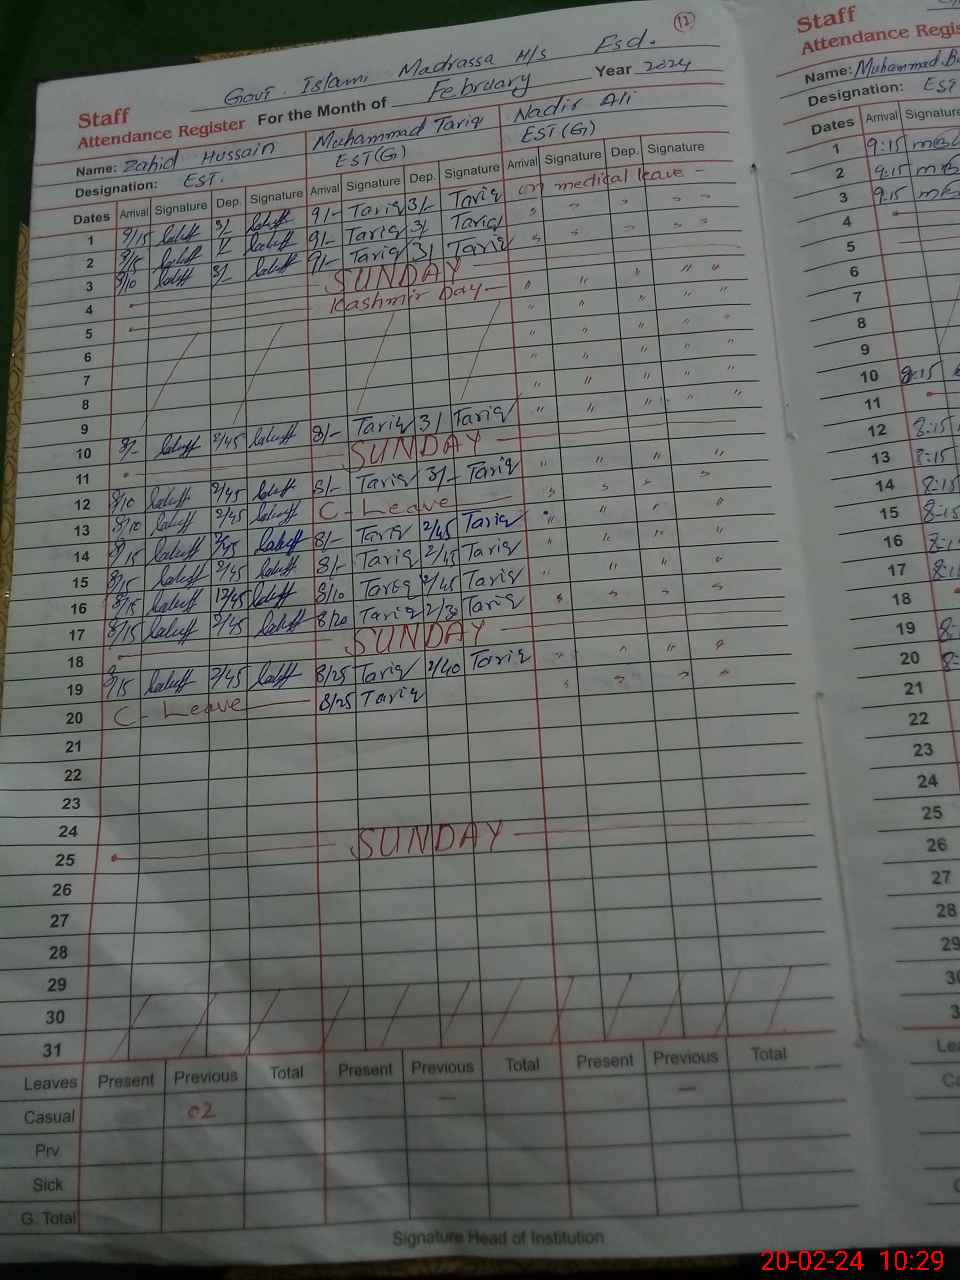 12
Govt. Islami Madrassa H/s Fsd.
Staff
Attendance Register For the Month of February Year 2024
Name: Zahid Hussain Muhammad Tariq Nadir Ali
Designation: EST. EST(G) EST(G)
Dates Arrival Signature Dep. Signature Arrival Signature Dep. Signature Arrival Signature Dep. Signature
1 9/15 3/- 9/- Tariq 3/- Tariq on medical leave -
2 9/15 9/- Tariq 3/ Tariq " " " " "
3 9/10 3/- 9/- Tariq 3/ Tariq " " " " "
4 SUNDAY
5 Kashmir Day - " " " " "
6 " " " " "
7 " " " " "
8 " " " " "
9 " " " " "
10 8/- 2/45 8/- Tariq 3/ Tariq " " " " "
11 SUNDAY
12 8/10 2/45 8/- Tariq 3/- Tariq " " " "
13 8/10 2/45 C - Leave " " " "
14 8/15 2/45 8/- Tariq 2/45 Tariq " " " "
15 8/15 2/45 8/- Tariq 2/45 Tariq " " " "
16 8/15 12/45 8/10 Tariq 12/45 Tariq " " " "
17 8/15 2/45 8/20 Tariq 2/30 Tariq " " " "
18 SUNDAY
19 8/15 2/45 8/25 Tariq 2/40 Tariq " " " "
20 C - Leave 8/25 Tariq " " " "
21
22
23
24
25 SUNDAY
26
27
28
29
30
31
Leaves Present Previous Total Present Previous Total Present Previous Total
Casual 02 — —
Prv
Sick
G. Total
Signature Head of Institution
Staff
Attendance Regis
Name: Muhammad
Designation: EST
Dates Arrival Signature
1 9:15
2 9:15
3 9:15
4
5
6
7
8
9
10 8:15
11
12 8:15
13 8:15
14 8:15
15 8:15
16 8:1
17 8:1
18
19 8:
20 8:
21
22
23
24
25
26
27
28
29
30
3
Lea
20-02-24 10:29